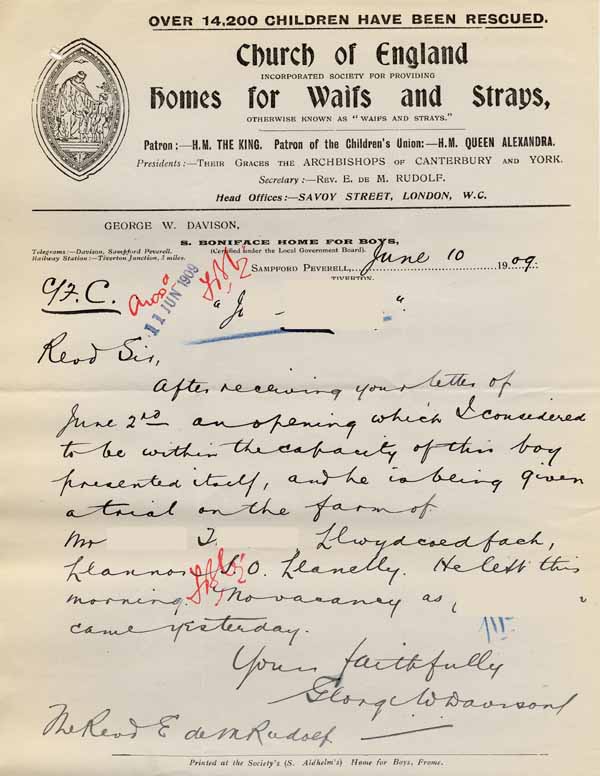 OVER 14,200 CHILDREN HAVE BEEN RESCUED.
Church of England
INCORPORATED SOCIETY FOR PROVIDING
Homes for Waifs and Strays,
OTHERWISE KNOWN AS "WAIFS AND STRAYS."
Patron:—H.M. THE KING. Patron of the Children's Union:—H.M. QUEEN ALEXANDRA.
Presidents:—THEIR GRACES THE ARCHBISHOPS OF CANTERBURY AND YORK.
Secretary:—REV. E. DE M. RUDOLF.
Head Offices:—SAVOY STREET, LONDON, W.C.
GEORGE W. DAVISON,
S. BONIFACE HOME FOR BOYS,
Telegrams:—Davison, Sampford Peverell.
(Certified under the Local Government Board).
Railway Station:—Tiverton Junction, 5 miles.
SAMPFORD PEVERELL, June 10 1909.
TIVERTON.
11 JUN 1909
Revd Sir,
After receiving your letter of
June 2nd an opening which I considered
to be within the capacity of this boy
presented itself, and he is being given
a trial on the farm of
Mr T. Llwydcoedfach,
Llannon S.O. Llanelly. He left this
morning. No vacancy as
came yesterday.
Yours faithfully
George W Davison
The Revd E de M Rudolf
Printed at the Society's (S. Aldhelm's) Home for Boys, Frome.